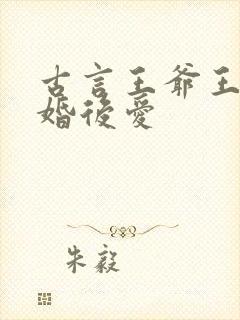 古言王爺王
婚後愛
朱毅